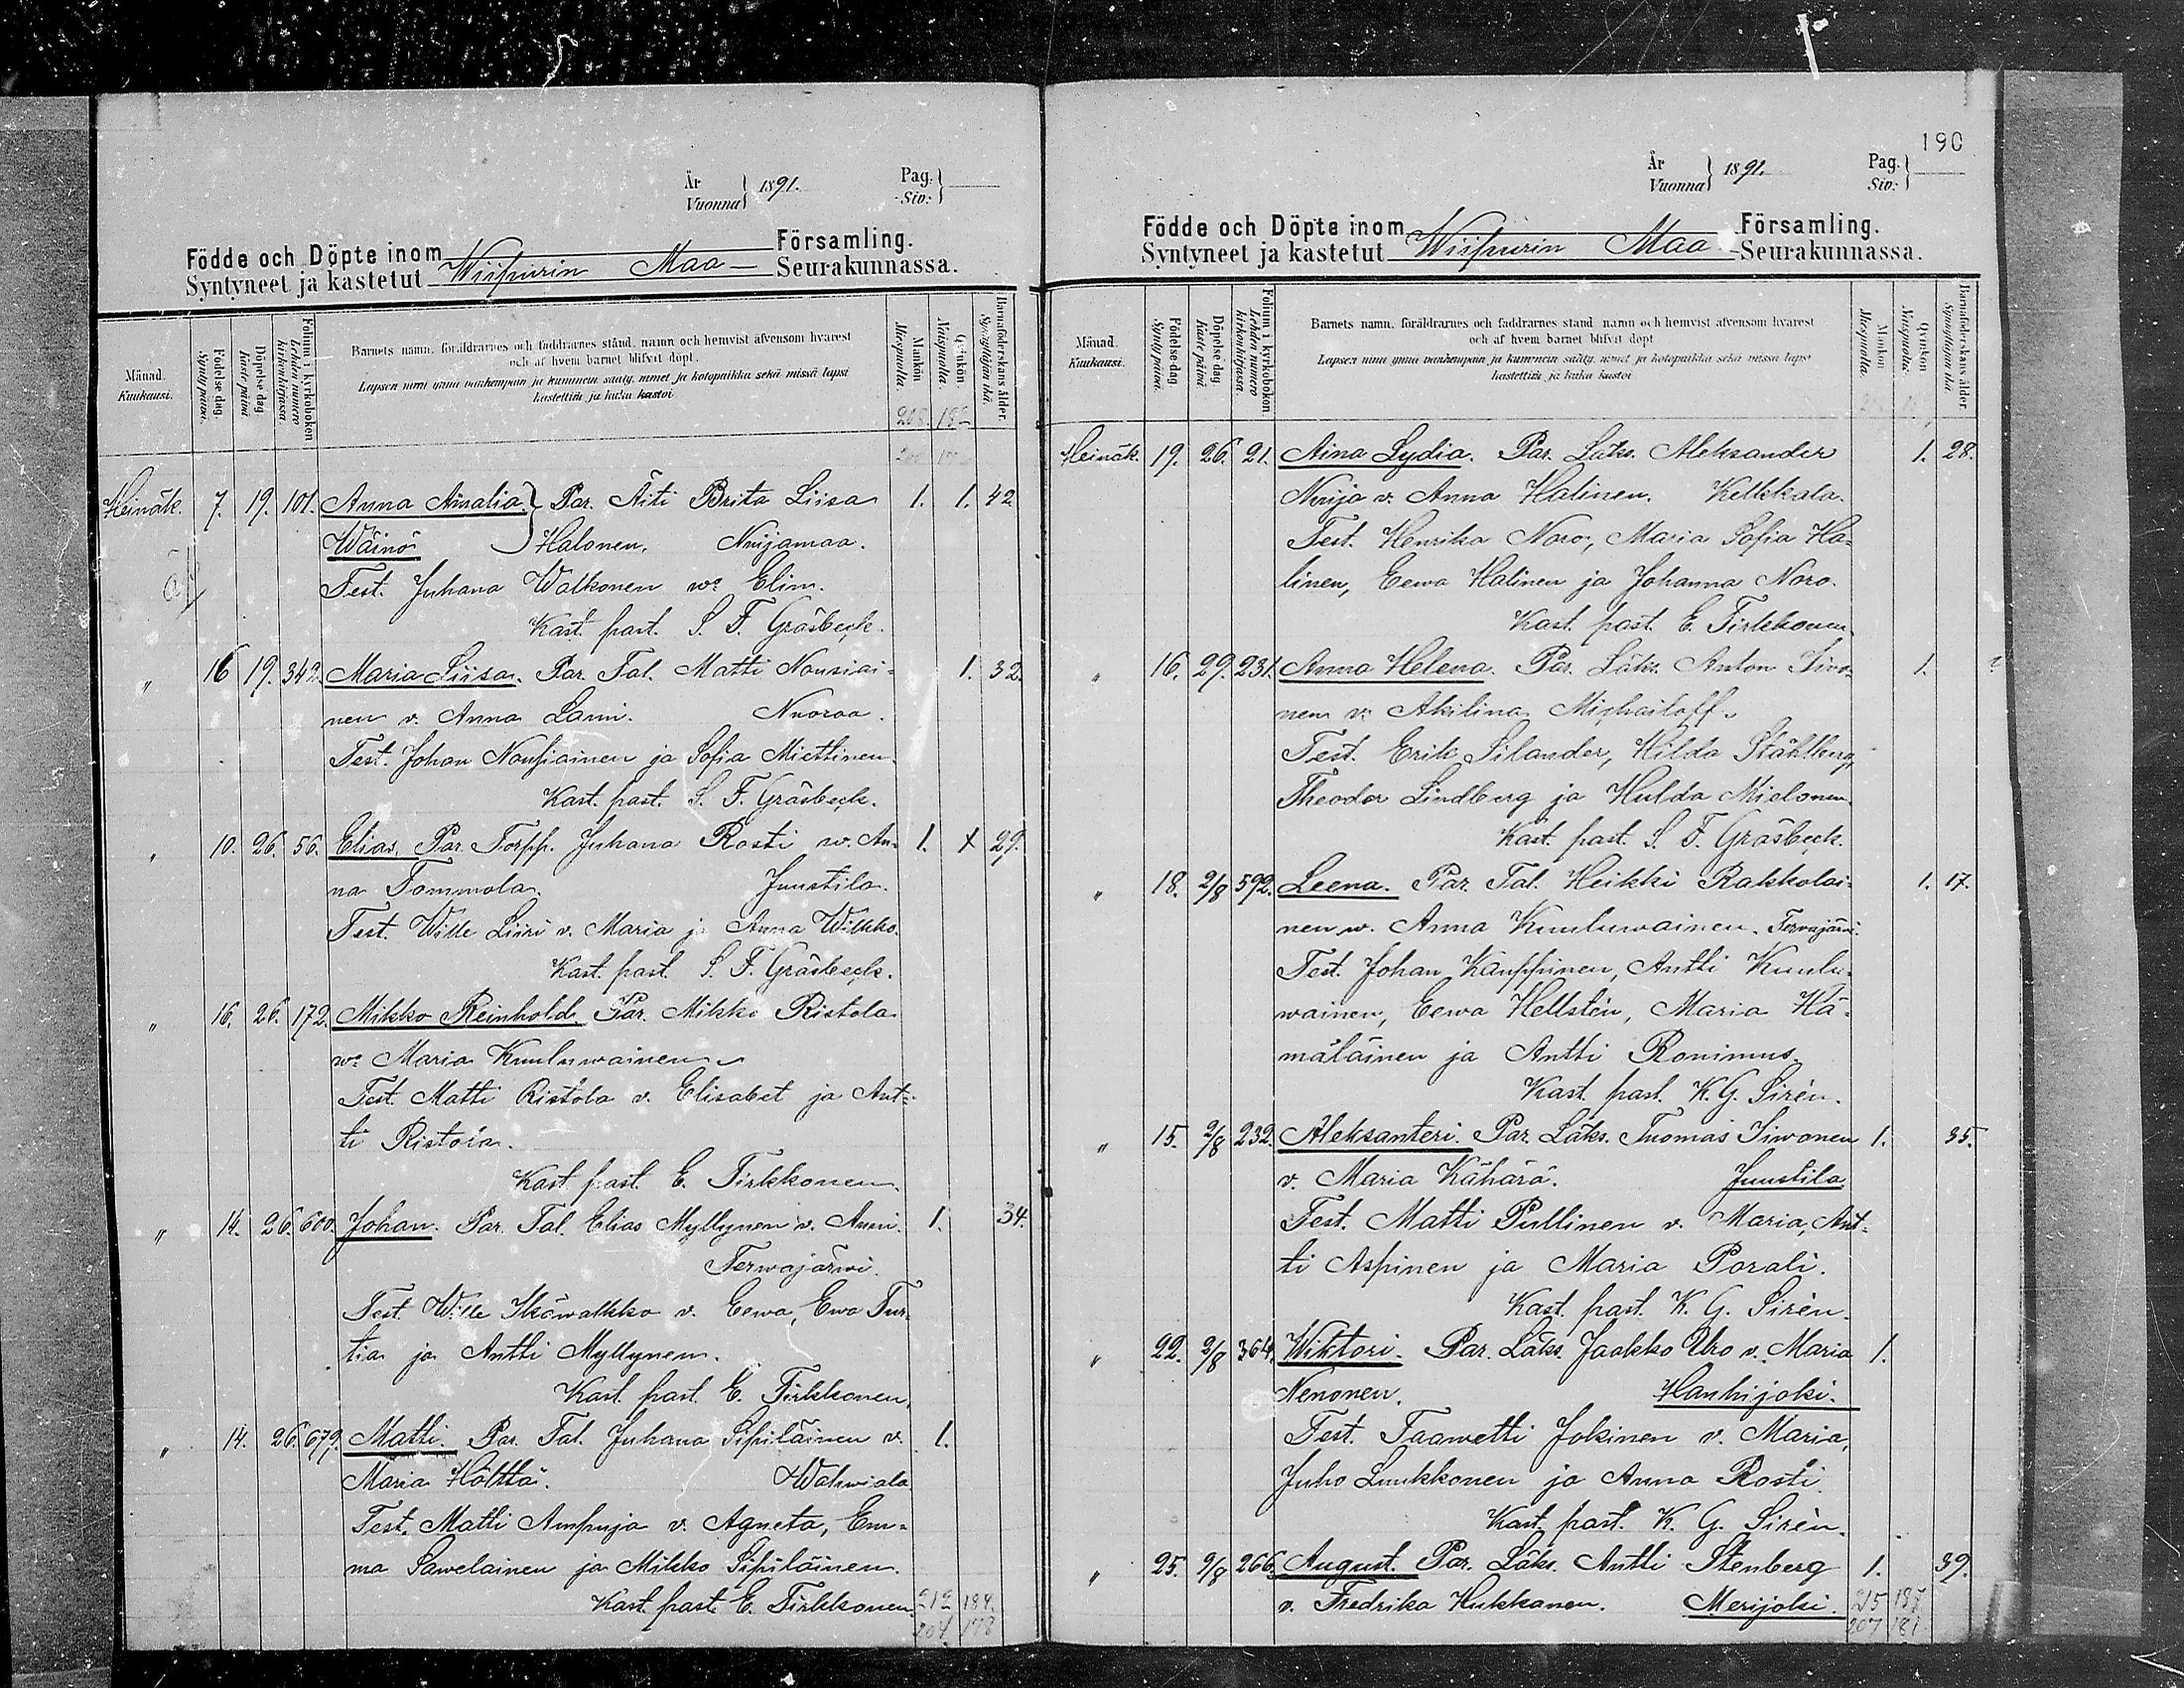 År
Vuonna } 1891.
Pag.
Siv: }
Födde och Döpte inom Församling.
Syntyneet ja kastetut Wiipurin Maa- Seurakunnassa.
Månad.
Kuukausi.
Födelse dag.
Synty päivä.
Döpelse dag
Kaste päivä.
Folium i kyrkoboken
Lehden numero kirkonkirjassa.
Barnets namn, föräldrarnes och faddrarnes stånd, namn och hemvist äfvensom hvarest
och af hvem barnet blifvit döpt.
Lapsen nimi ynnä vanhempain ja kummein sääty, nimet ja kotopaikka sekä missä lapsi
kastettiin ja kuka kastoi
Mankön
Miespuolia.
Qvinkön.
Naispuolia.
Barnaföderskans ålder.
Synnyttäjän ikä.
208. 182
Heinäk. 7. 19. 101. Anna Amalia. } Par. Äiti Brita Liisa 1. 1. 42
Wäinö Halonen. Nuijamaa.
Test. Juhana Walkonen wo Elin.
Kast. past. S. F. Gräsbeck.
" 16 19. 342. Maria Liisa. Par. Tal. Matti Nousiai- 1. 32.
nen v. Anna Lami. Nuoraa.
Test. Johan Nousiainen ja Sofia Miettinen.
Kast. past. S. F. Gräsbeck.
" 10. 26. 56. Elias. Par. Torpp. Juhana Rosti w. An- 1. x 29.
na Tommola. Juustila.
Test. Wille Liiri v. Maria ja Anna Wilkko.
Kast. past. S. F. Gräsbeck.
" 16. 26. 172. Mikko Reinhold. Par. Mikko Ristola
wo Maria Kuuluwainen
Test. Matti Ristola v. Elisabet ja Ant-
ti Ristola.
Kast. past. E. Tirkkonen.
" 14. 26. 600. Johan. Par. Tal. Elias Myllynen v. Anni. 1. 34.
Terwajärwi.
Test. Wille Ikäwalkko v. Eewa, Ewa Tur-
tia ja Antti Myllynen.
Kast. past. E. Tirkkonen.
" 14. 26. 679. Matti. Par. Tal. Juhana Sipiläinen v. 1.
Maria Hölttä. Wahwiala
Test. Matti Ampuja v. Agneta, Em-
ma Sawelainen ja Mikko Sipiläinen.
Kast. past. E. Tirkkonen.
212 184.
204 178
190
År
Vuonna } 1891.
Pag.
Siv: }
Födde och Döpte inom Församling.
Syntyneet ja kastetut Wiipurin Maa- Seurakunnassa.
Månad.
Kuukausi.
Födelse dag.
Synty päivä.
Döpelse dag.
Kaste päivä
Folium i kyrkoboken
Lehden numero kirkonkirjassa.
Barnets namn, föräldrarnes och faddrarnes stånd, namn och hemvist äfvensom hvarest
och af hvem barnet blifvit döpt
Lapsen nimi ynnä vanhempain ja kummein sääty, nimet ja kotopaikka sekä missä lapsi
kastettiin ja kuka kastoi
Mankön
Miespuolia.
Qvinkön.
Naispuolia.
Barnaföderskans ålder
Synnyttäjän ikä.
Heinäk. 19. 26. 21. Aina Lydia. Par. Läks. Aleksander 1. 28.
Nuija v. Anna Halinen. Kelkkala.
Test. Henrika Noro, Maria Sofia Ha-
linen, Eewa Halinen ja Johanna Noro.
Kast. past. E. Tirkkonen.
" 16. 29. 231. Anna Helena. Par. Läks. Anton Siwo- 1. ?
nen v. Akilina Michailoff.
Test. Erik Silander, Hilda Ståhlberg,
Theodor Lindberg ja Hulda Mielonen
Kast. past. S. F. Gräsbeck.
" 18. 2/8 592. Leena. Par. Tal. Heikki Rakkolai- 1. 17.
nen w. Anna Kuuluwainen. Terwajärwi.
Test. Johan Kauppinen, Antti Kuulu-
wainen, Eewa Hellstén, Maria Hä-
mäläinen ja Antti Ronimus.
Kast. past. K. G. Sirén.
" 15. 2/8 232. Aleksanteri. Par. Läks. Tuomas Siwonen 1. 35.
v. Maria Kähärä. Juustila
Test. Matti Pullinen v. Maria, Ant-
ti Aspinen ja Maria Porali.
Kast. past. K. G. Sirén.
" 22. 2/8 364. Wiktori. Par. Läks. Jaakko Uro v. Maria 1.
Nenonen. Hanhijoki.
Test. Taawetti Jokinen v. Maria,
Juho Luukkonen ja Anna Rosti.
Kast. past. K. G. Sirén.
" 25. 2/8 266. August. Par. Läks. Antti Stenberg 1. 39.
v. Fredrika Hukkanen. Merijoki.
215 187
207 181